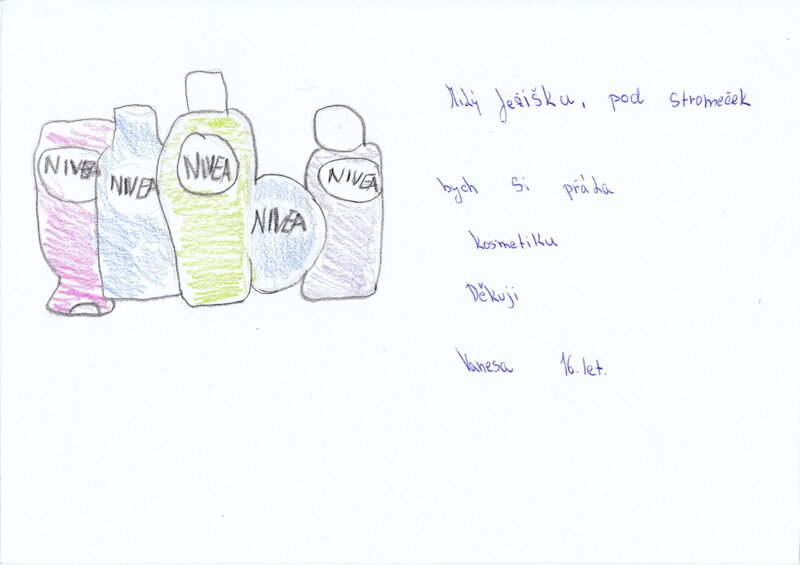 NIVEA
NIVEA
NIVEA
NIVEA
NIVEA
Milý Ježíšku, pod stromeček
bych si přála
kosmetiku
Děkuji
Vanesa 16.let.